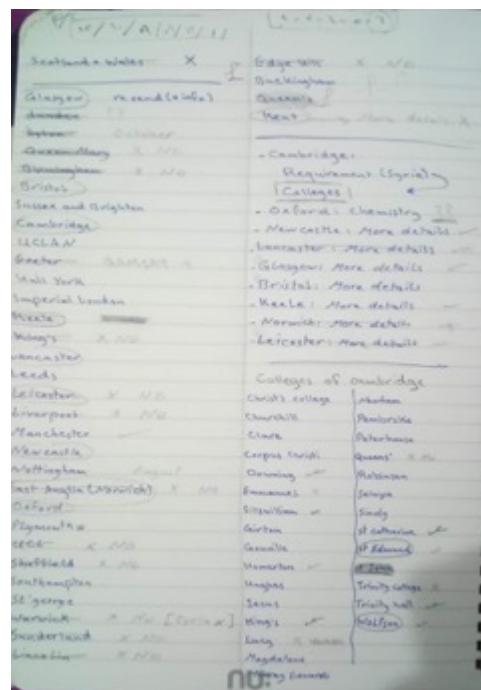 Scotland & Wales X
Glasgow resend (+ info)
dundee
October
Queen Mary X No
Birmingham X No
Bristol
Sussex and Brighton
Cambridge
UCLAN
Exeter
Hull York
Imperial London
Keele
King's X No
Lancaster
Leeds
Leicester X No
Liverpool X No
Manchester
Newcastle
Nottingham August
East Anglia (Norwich) X No
Oxford
Plymouth
X No
Sheffield X No
Southampton
St george
Warwick X No [Syria X]
Sunderland X No
Lincoln X No
Edge Hill X No
Buckingham
Queen's
Kent More details
- Cambridge:
Requirement (Syria)
Colleges
- Oxford: Chemistry ??
- Newcastle: More details
- Lancaster: More details
- Glasgow: More details
- Bristol: More details
- Keele: More details
- Norwich: More details
- Leicester: More details
Colleges of Cambridge
Christ's college
Churchill
Clare
Corpus Christi
Downing
Emmanuel X
Fitzwilliam
Girton
Homerton
Hughes
Jesus
King's
Lucy X
Magdalene
Murray Edwards
Pembroke
Peterhouse
Queens' X No
Robinson
Selwyn
Sindy
st catharine
st Edmund
Trinity college X
Trinity hall
Wolfson